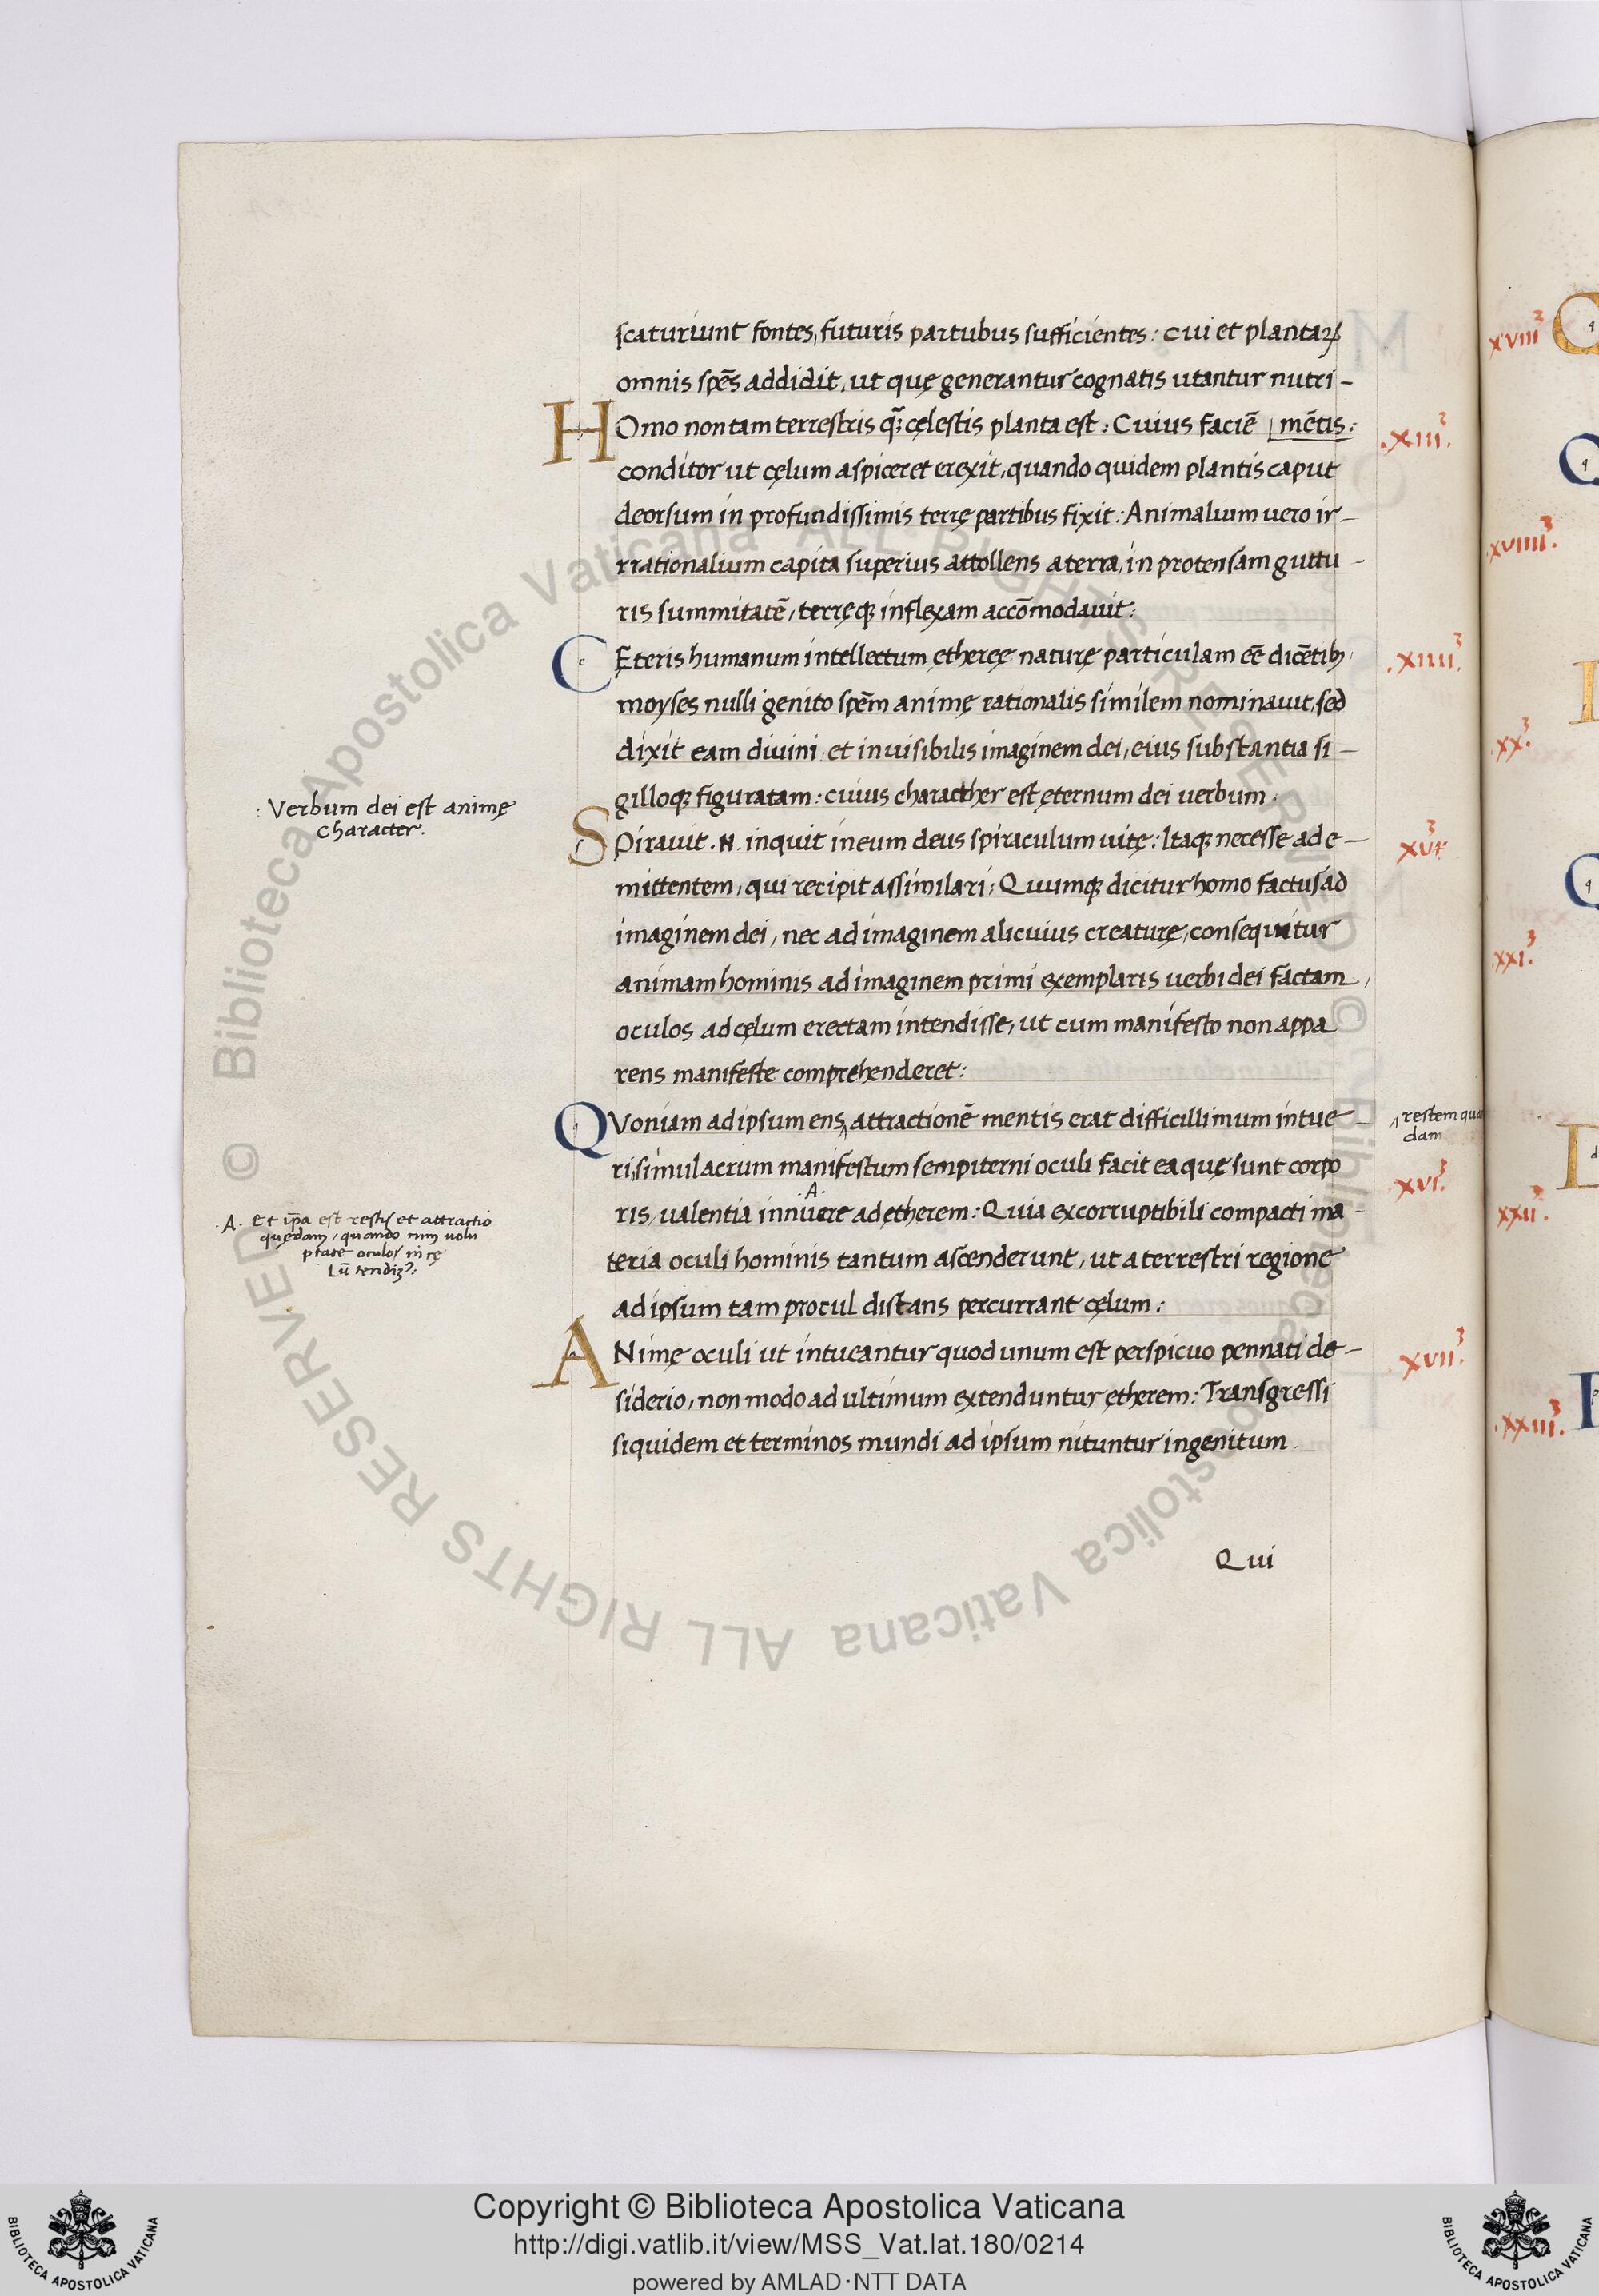 scaturiunt fontes, futuris partubus sufficientes : Cui et plantaꝝ
omnis spēs addidit, ut quę generantur cognatis utantur nutri-
HOmo non tam terrestris q̄ꝫ cęlestis planta est : Cuius faciē mētis :
.XIII³.
conditor ut cęlum aspiceret erexit, quando quidem plantis caput
deorsum in profundissimis terrę partibus fixit : Animalium uero ir-
rrationalium capita superius attollens a terra, in protensam guttu-
ris summitatē, terręqꝫ inflexam accōmodauit :
CEteris humanum intellectum ęthereę naturę particulam eē dicētibꝫ
.XIIII³.
moyses nulli genito spēm animę rationalis similem nominauit, sed
dixit eam diuini et inuisibilis imaginem dei, eius substantia si-
gilloqꝫ figuratam : cuius characther est ęternum dei uerbum .
: Verbum dei est animę
character .
SPirauit .N. inquit in eum deus spiraculum uitę : Itaqꝫ necesse ad e-
XV³.
mittentem, qui recipit assimilari ; Quumqꝫ dicitur homo factus ad
imaginem dei, nec ad imaginem alicuius creaturę, consequitur
animam hominis ad imaginem primi exemplaris uerbi dei factam,
oculos ad cęlum erectam intendisse, ut cum manifesto non appa
rens manifeste comprehenderet :
QVoniam ad ipsum ens, attractionē mentis erat difficillimum intue-
restem quā
dam
ri, simulacrum manifestum sempiterni oculi facit ea quę sunt corpo
.XVI³.
.A.
ris, ualentia innuere ad ętherem : Quia ex corruptibili compacti ma-
.A. Et ip̄a est restis et attractio
quędam, quando cum uolu
ptate oculos in cę
teria oculi hominis tantum ascenderunt, ut a terrestri regione
ad ipsum tam procul distans percurrant cęlum :
ANimę oculi ut intueantur quod unum est perspicuo pennati de-
.XVII³.
siderio, non modo ad ultimum extenduntur ętherem : Transgressi
siquidem et terminos mundi ad ipsum nituntur ingenitum .
Qui
XVIII³
XVIIII³.
.XX³.
XXI³.
XXII³.
.XXIII³.
© Biblioteca Apostolica Vaticana ALL RIGHTS RESERVED © Biblioteca Apostolica Vaticana ALL RIGHTS RESERVED
Copyright © Biblioteca Apostolica Vaticana
http://digi.vatlib.it/view/MSS_Vat.lat.180/0214
powered by AMLAD·NTT DATA
BIBLIOTECA APOSTOLICA VATICANA
BIBLIOTECA APOSTOLICA VATICANA